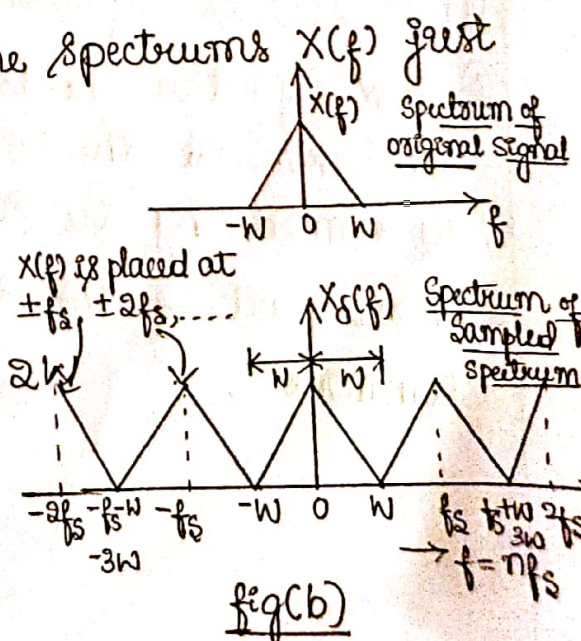 he spectrums X(f) just
X(f)
Spectrum of
original signal
-W 0 W f
X(f) is placed at
±fs, ±2fs,.....
Xδ(f)
Spectrum of
Sampled
Spectrum
W W
-2fs -fs-W -fs -W 0 W fs fs+W 2fs
-3W 3W
→ f = nfs
fig(b)